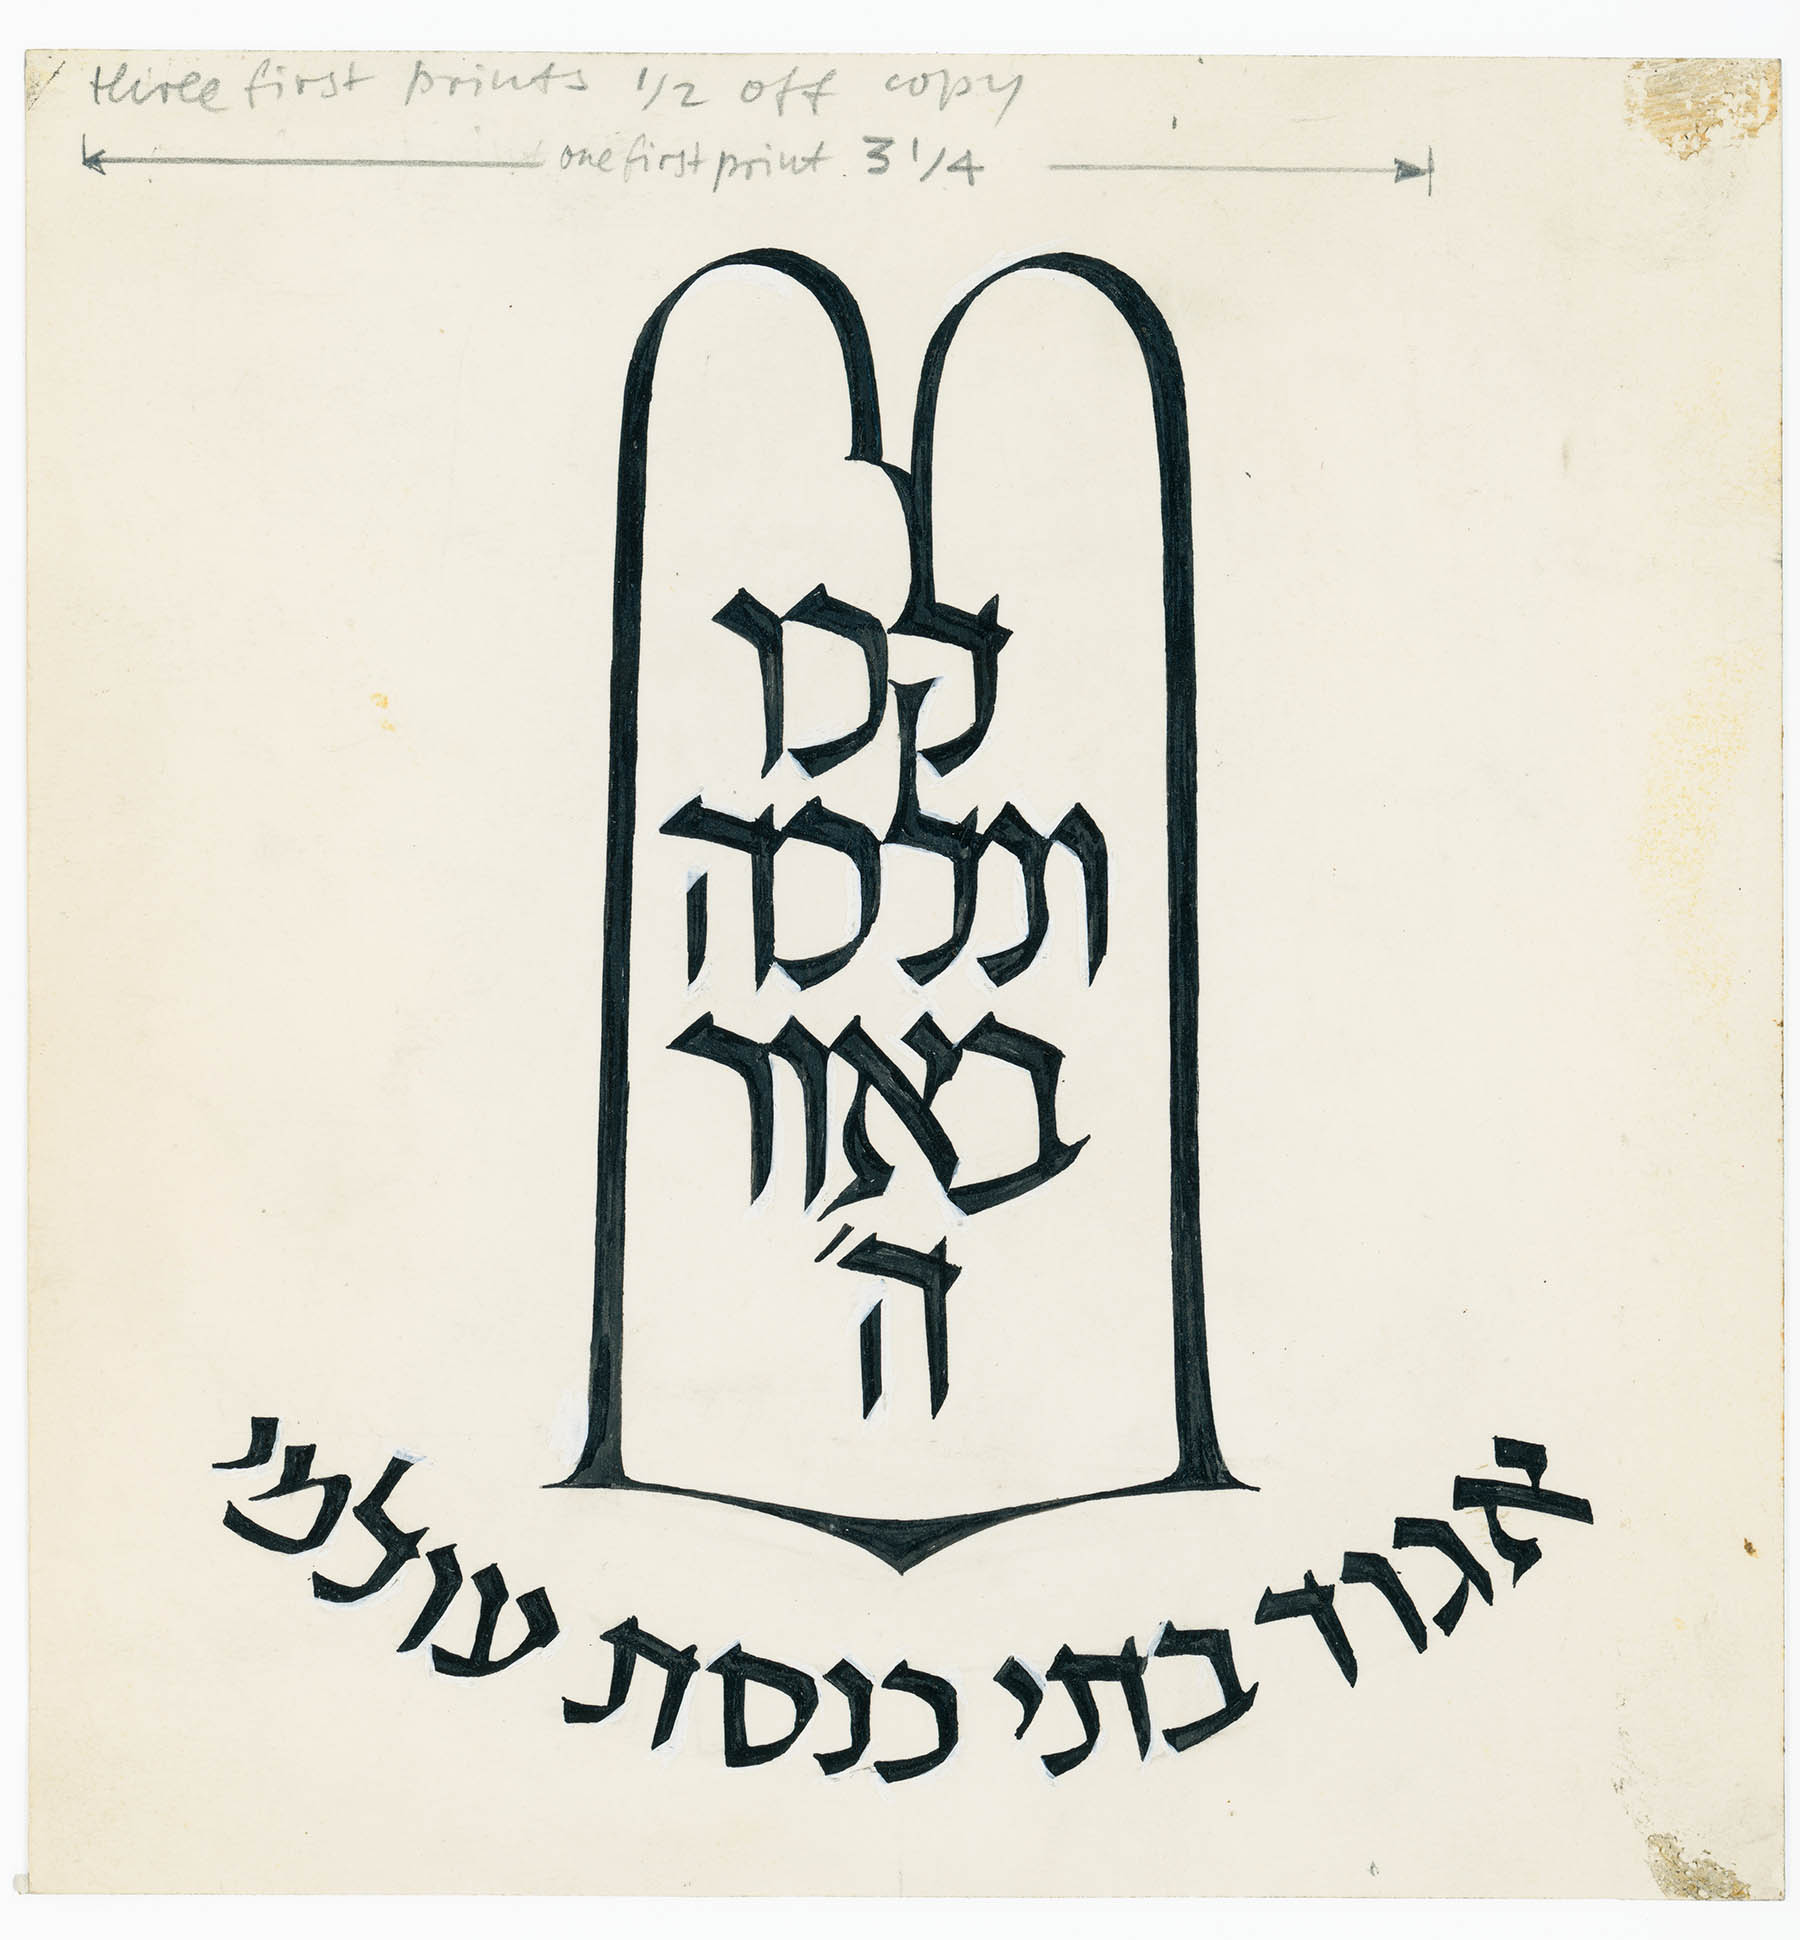 three first prints 1/2 off copy
one first print 3 1/4
לכו
ונלכה
באור
ה׳
אגוד בתי כנסת עולמי